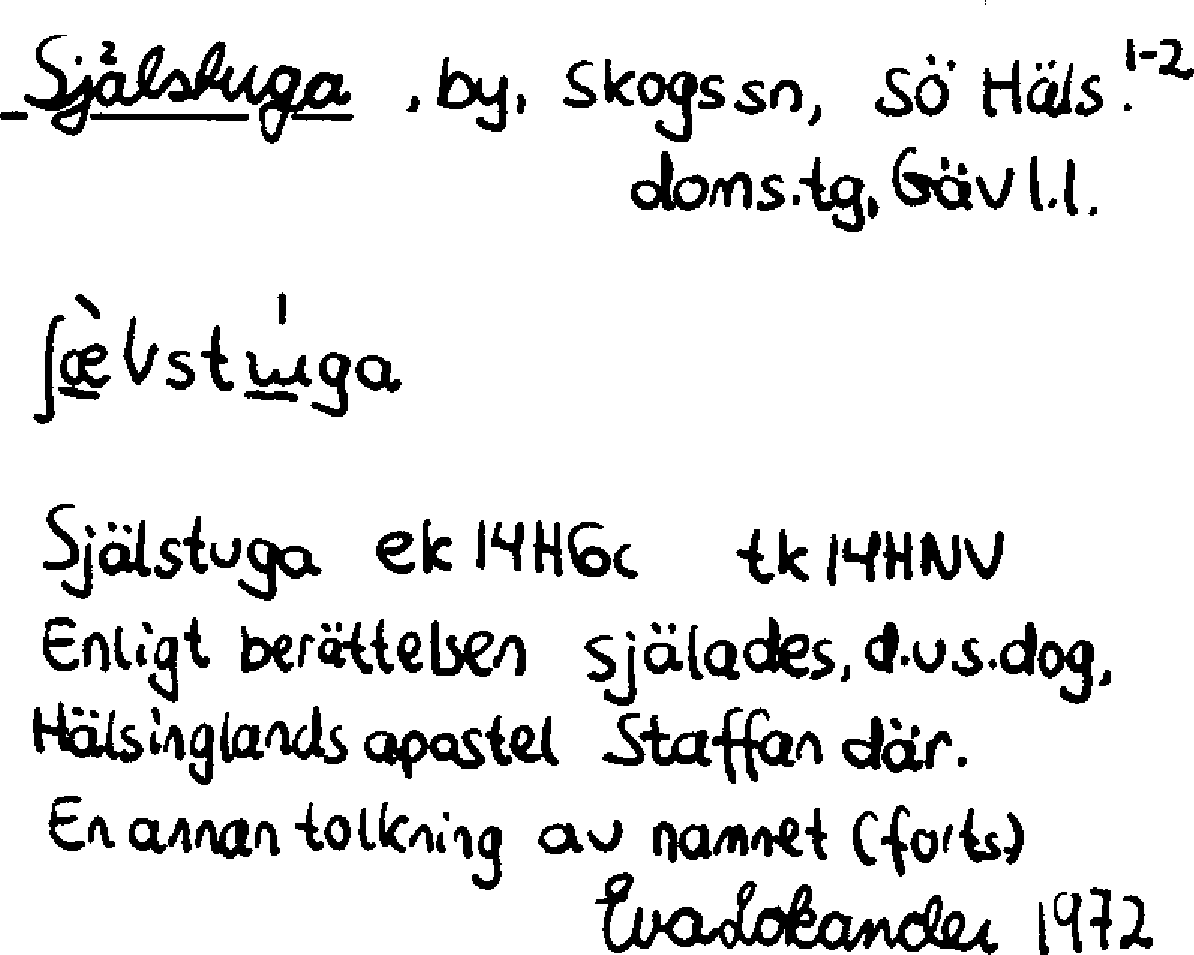 Själstuga, by, Skogs sn, Sö Häls. 1-2
doms.tg, Gävl.l.
Själstuga ek 14H6c tk 14HNV
Enligt berättelsen själades, d.v.s. dog,
Hälsinglands apostel Staffan där.
En annan tolkning av namnet (forts)
Eva Lokander 1972